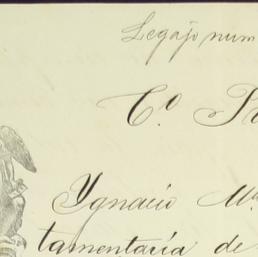 Legajo num
C.º
Ygnacio M.ª
tamentaría de